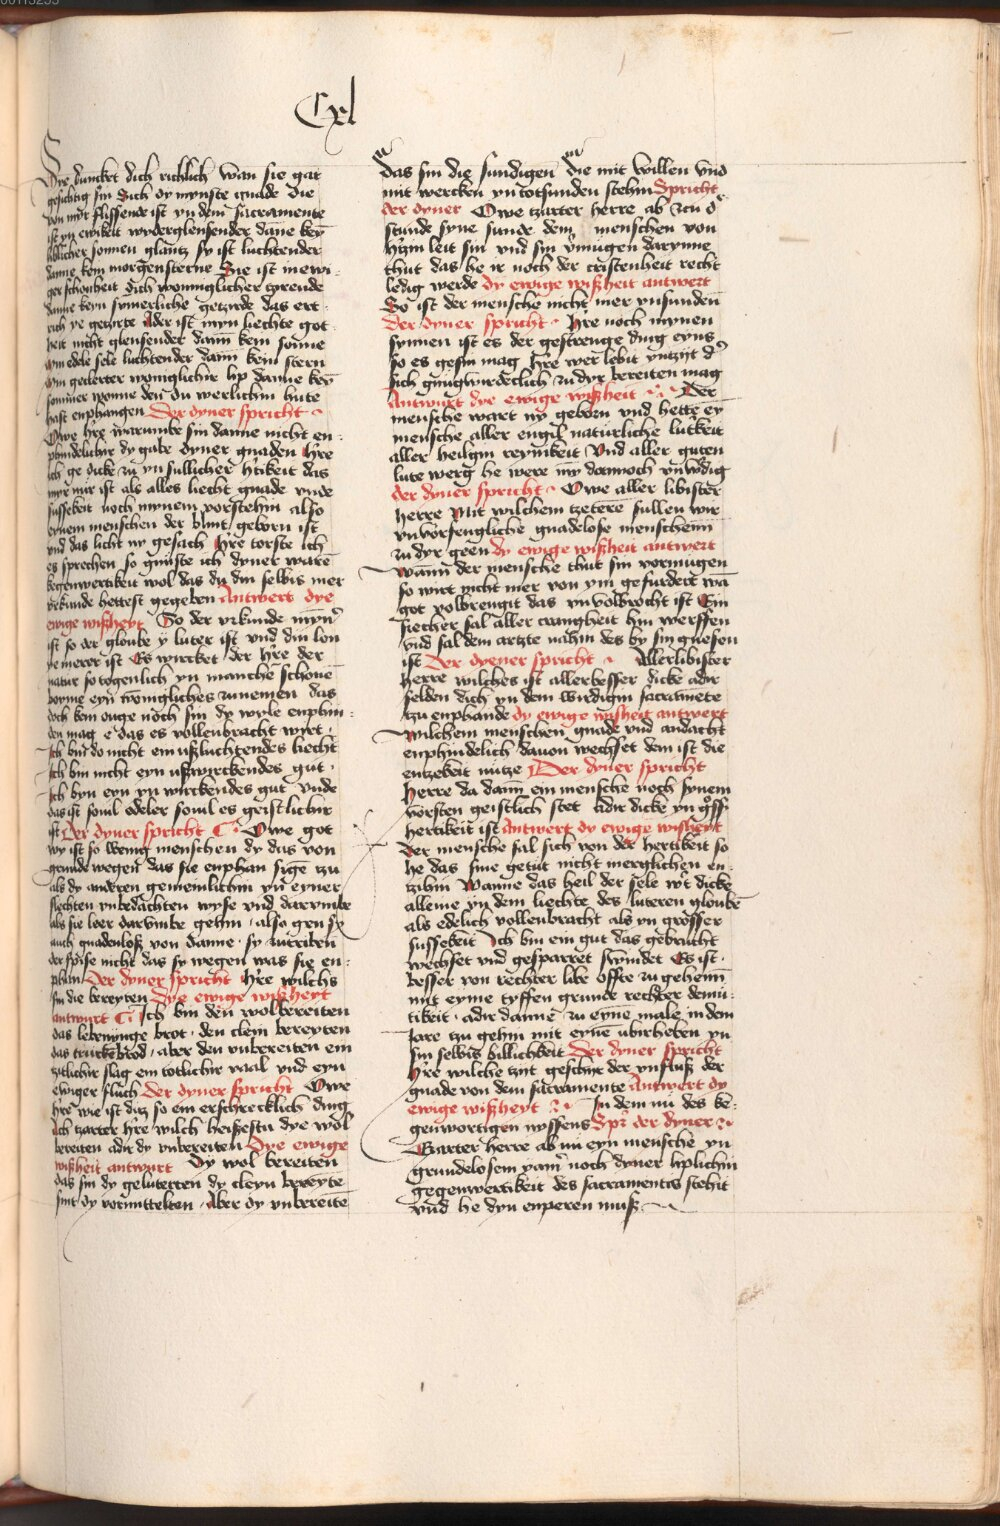 Cxl
Die duncket dich richlich wan sie gar
gesichtig sin Sich dy mynste gnade die
von myr flissende ist yn dem sacramente
ist yn ewikeit wyderglensender dane key
liblicher sonnen glantz sy ist luchtender
danne kein morgensterne Sie ist in ewi
ger schonheit dich wonniglicher tzirende
danne keyn sumerliche getzirde das ert
rich ye getzirte Ader ist myn liechte got
heit nicht glensender dann kein sonne
myn edele sele luchtender dann kein stern
myn geclerter woniglicher lip danne key
sommer wonne den du werlichin hute
hast enphangen Der dyner spricht
Owe hre warumbe sin danne nicht en
phindelicher dy gabe dyner gnaden Hre
ich ge dicke zu yn sullicher htikeit das
myr mir ist als alles liecht gnade unde
sussekeit noch mynem vorstehin also
eynem menschen der blint geborn ist
vnd das licht ny gesach Hre torste ich
es sprechen so gunste ich dyner ware
kegenwertikeit wol das du din selbis mer
vrkunde hettest gegeben Antwert dye
ewige wißheyt So der vrkunde mynr
ist so der gloube y luter ist vnd din lon
ye merer ist Es wircket der hre der
natur so togenlich yn manche schone
forme eyn wonigliches zunemen das
doch kein ouge noch sin dy wyle enphin
den mag e das es vollenbracht wirt
Ich bin do nicht ein ußluchtendes liecht
Ich bin nicht eyn ußwirckendes gut
Ich byn eyn yn wirckendes gut vnde
das ist souil edeler souil es geistlicher
ist Der dyner spricht Owe got
wy ist so wenig menschen dy das von
grunde wegen das sie enphan sige tzu
als dy anderen gemeinlichin yn eyner
slechten vnbedachten wyse vnd darumbe
als sie leer darumbe gehin also gen sy
auch gnadenloß von danne sy zutriben
der spise nicht das sy wegen was sie en
phan Der dyner spricht Hre wilchs
sin die bereyten Dye ewige wißheyt
antwurt Ich bin den wolbereiten
das lebeninge brot den clein bereyten
das truckebrod aber den unbereiten ein
zitlicher slag ein totlicher vaal vnd eyn
ewiger fluch Der dyner spricht Owe
hre wie ist diz so ein erschrecklich ding
Ach tzarter hre wilch heißestu dye wol
bereiten adir dy vnbereiten Dye ewige
wißheit antwurt Dy wol bereiten
das sin dy geluterten dy cleyn bereyte
sint dy vormittelten Aber dy vnbereite
das sin die sundigen die mit willen vnd
mit wercken yn totsunden stehin Spricht
der dyner Owe tzarter herre ab zcu dr
stunde syne sunde dem menschen von
hrzin leit sin vnd sin vmugen darynne
thut das he ir noch der cristenheit recht
ledig werde dy ewige wißheit antwert
So ist der mensche nicht mer yn sunden
Der dyner spricht Hre noch mynen
synnen ist es der gestrenge ding eyns
so es gesin mag Hre wer lebit yn zyt dr
sich gnugwirdeclich zu dyr bereiten mag
Antwurt dye ewige wißheit Der
mensche wart ny geborn vnd hette ey
mensche aller engil naturliche lutkeit
aller heilgin reynikeit Vnd aller guten
lute werg he were im dannoch vnwirdig
der dyner spricht Owe aller libister
herre Mit wilchem tzetere sullen wir
vnvorfengliche gnadelose menschenn
zu dyr geen dy ewige wißheit antwert
Wann der mensche thut sin vormugen
so wirt nicht mer von ym gefurdert wa
got volbrengit das vnvolbrocht ist Ein
siecher sal aller crangheit hin werffen
vnd sal dem artzte nahin des by sin gnesen
ist Der dyener spricht Allerlibister
herre wilches ist allerbesser dicke adir
selden dich yn dem wirdigin sacramete
tzu enphande dy ewige wißheit antwert
Wilchem menschen gnade vnd andacht
enphindelich dauon wechset dem ist die
entzekeit nutze Der dyner spricht
Herre da dann ein mensche noch synem
vorsten geistlich stet adir dicke yn gosse
hertikeit ist Antwert dy ewige wißheyt
Der mensche sal sich von der hertikeit so
he das sine getut nicht merglichen en
tzihin Wanne das heil der sele wrt dicke
alleine yn dem liechte des luteren gloube
als edelich vollenbracht als yn grosser
sussekeit Ich bin ein gut das gebrucht
wechset vnd gesparret swindet Es ist
besser von rechter libe offte zu gehenn
mit eyme tyffen grunde rechter demu
tikeit adir danne zu eyne male in dem
Jare tzu gehin mit eyne ubirheben yn
sin selbis billichkeit Der dyner spricht
Hre wilche tzyt geschiet der ynfluß der
gnade von dem sacramente Antwert dy
ewige wißheyt In dem nu des ke
geinwortigen nyssens Spr der dyner
Tzarter herre ab nu eyn mensche yn
grundelosem yamr noch dyner liplichin
gegenwertikeit des sacramentes stehit
vnd he dyn enperen muß